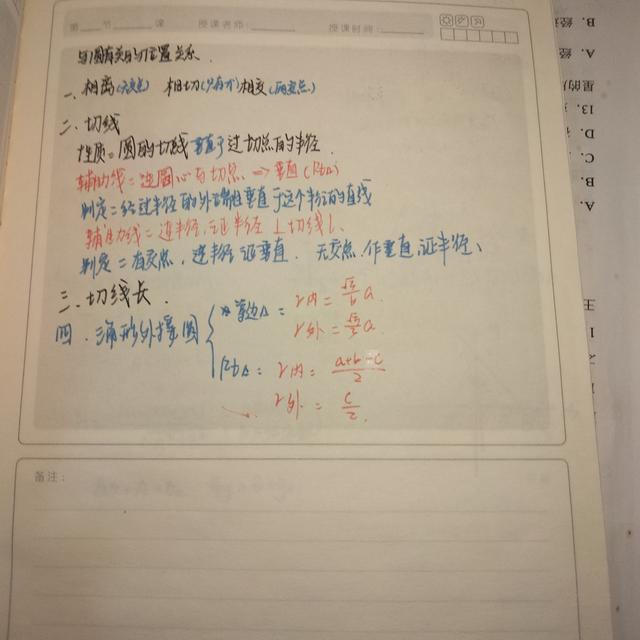 第 节 课 授课名师: 授课时间:
与圆有关的位置关系.
一、相离(无交点) 相切(只有1个)相交(两交点)
二、切线
性质=圆的切线垂直于过切点的半径.
辅助线=连圆心与切点 => 垂直(Rt△)
判定=经过半径的外端且垂直于这个半径的直线
辅助线=连半径,证半径⊥切线l.
判定=有交点,连半径证垂直. 无交点,作垂直,证半径、
三、切线长.
四、三角形外接圆
等边△= r内= √3/6 a.
r外= √3/3 a.
Rt△= r内= a+b-c/2
r外 = c/2.
备注:
B.
A.
13.
D.
C.
B.
A